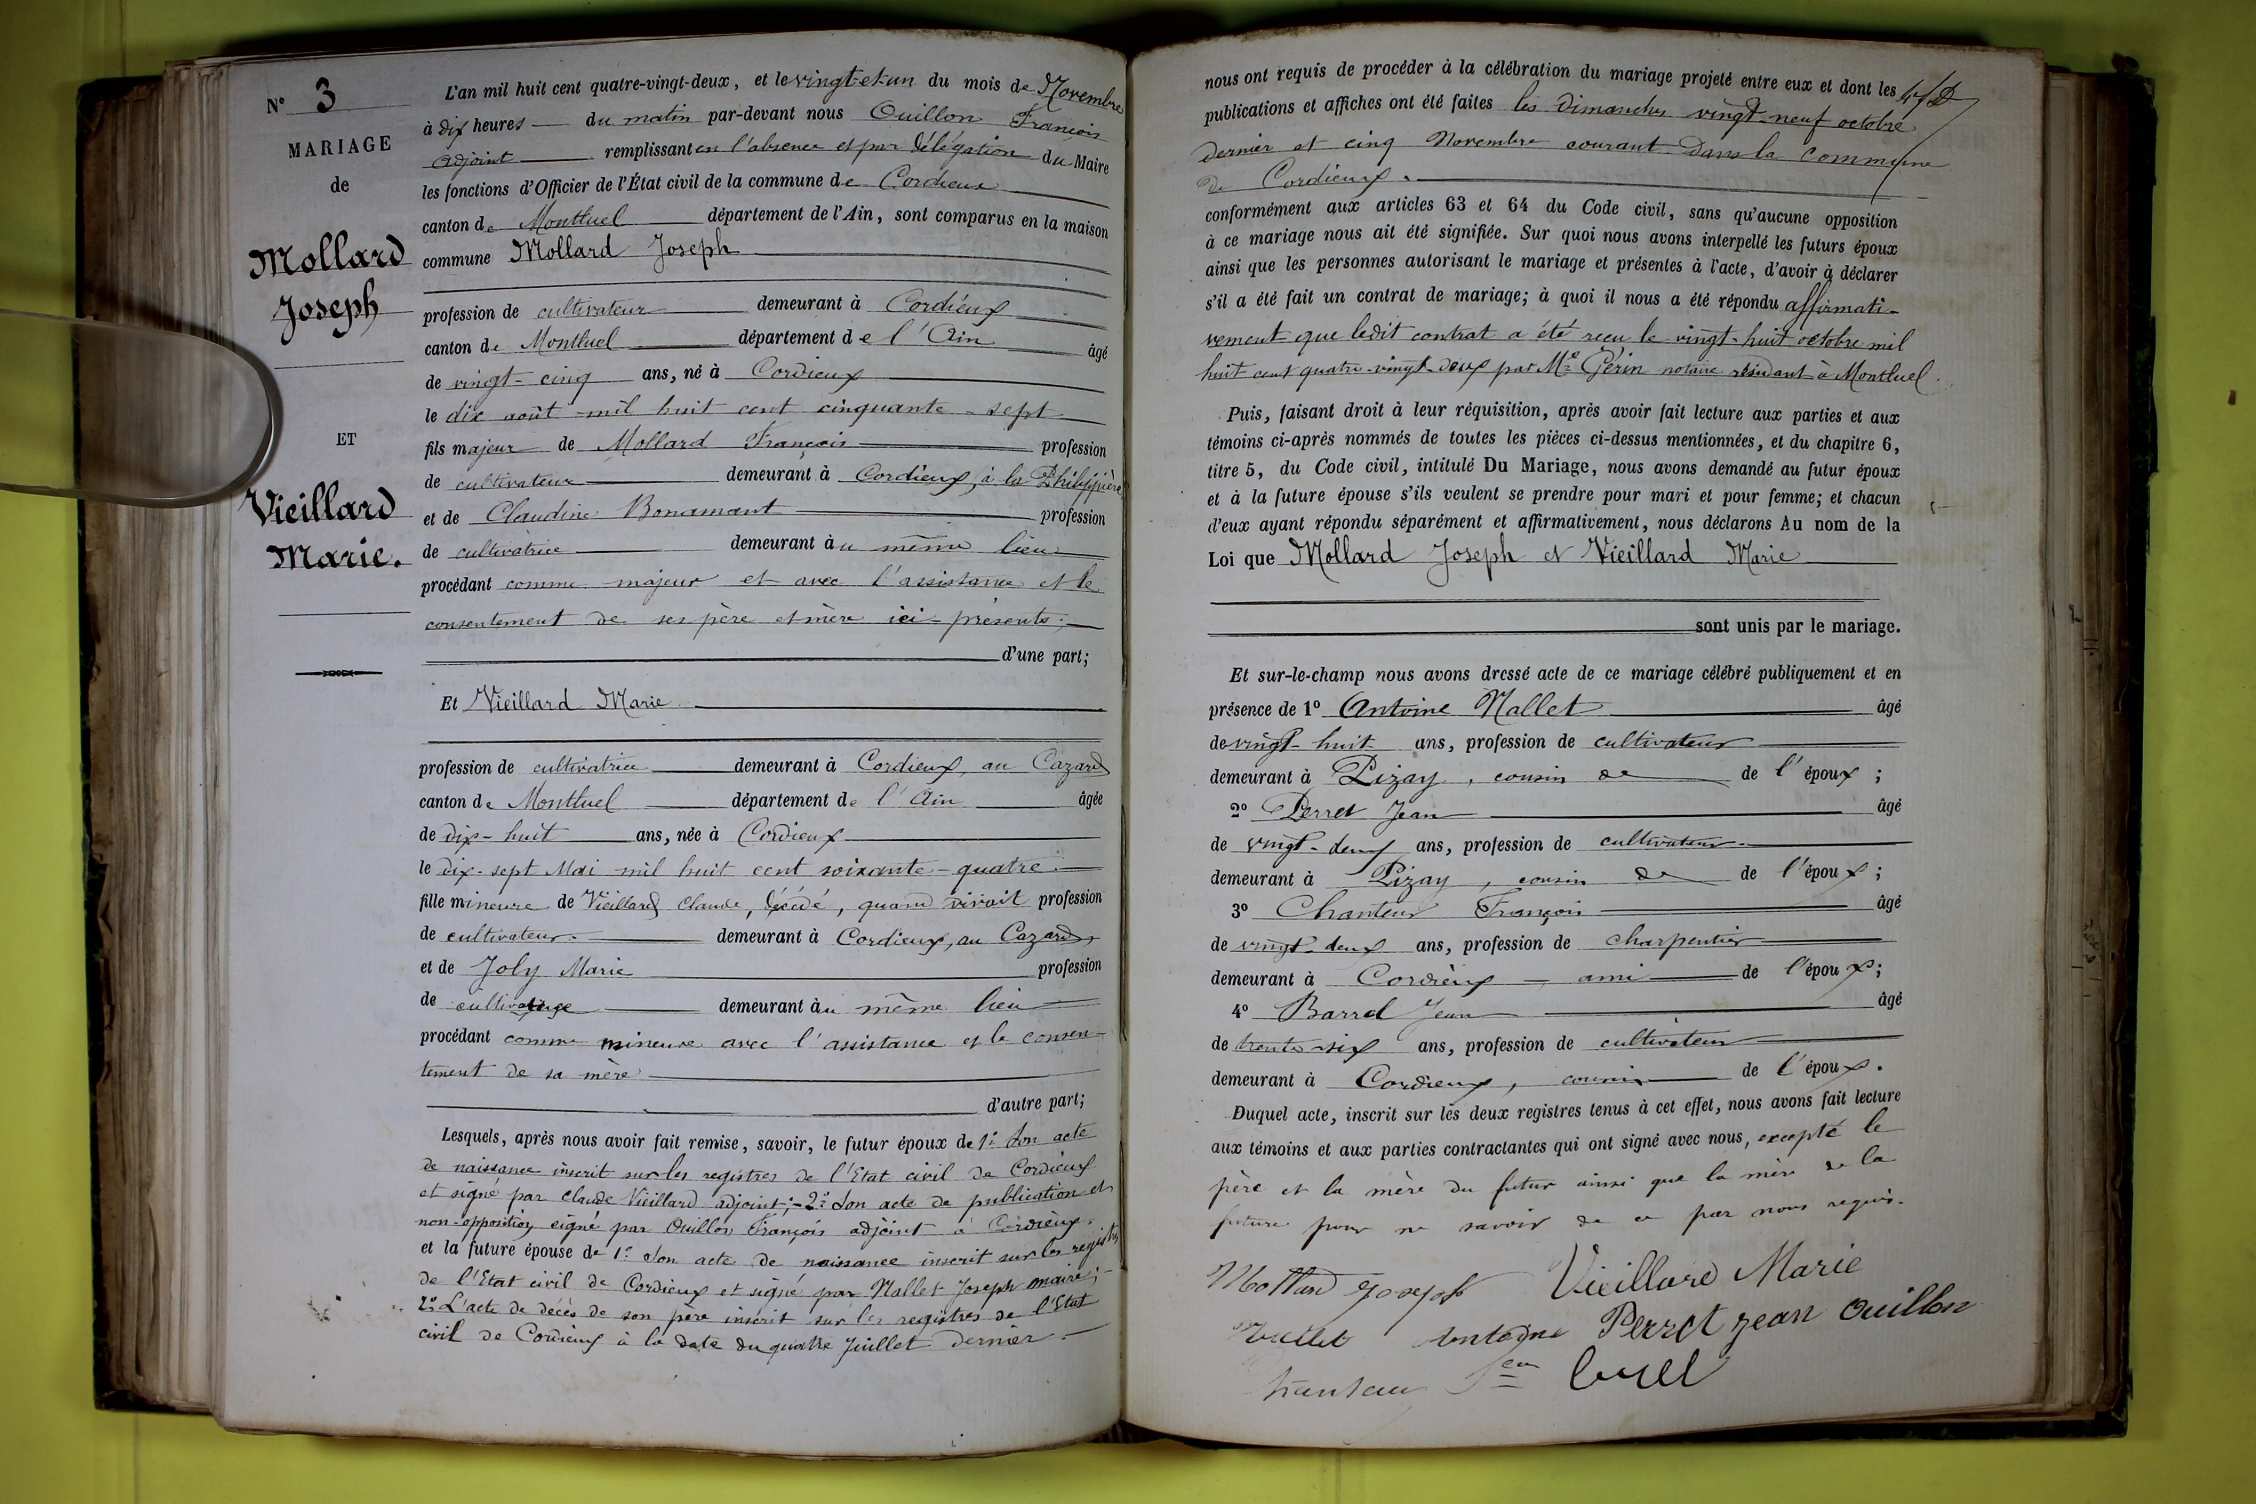 N° 3
MARIAGE
de
Mollard
Joseph
ET
Vieillard
Marie.
L'an mil huit cent quatre-vingt-deux, et le vingt-et-un du mois de Novembre
à dix heures du matin par-devant nous Ouillon François
adjoint remplissant en l'absence et par délégation du Maire
les fonctions d'Officier de l'État civil de la commune de Cordieux
canton de Montluel département de l'Ain, sont comparus en la maison
commune Mollard Joseph
profession de cultivateur demeurant à Cordieux
canton de Montluel département de l'Ain âgé
de vingt-cinq ans, né à Cordieux
le dix août mil huit cent cinquante-sept
fils majeur de Mollard François profession
de cultivateur demeurant à Cordieux, à la Philippière
et de Claudine Bonamant profession
de cultivatrice demeurant au même lieu
procédant comme majeur et avec l'assistance et le
consentement de ses père et mère ici présents;
d'une part;
Et Vieillard Marie
profession de cultivatrice demeurant à Cordieux, au Cazard
canton de Montluel département de l'Ain âgée
de dix-huit ans, née à Cordieux
le dix-sept Mai mil huit cent soixante-quatre
fille mineure de Vieillard Claude, décédé, quand vivait profession
de cultivateur demeurant à Cordieux, au Cazard,
et de Joly Marie profession
de cultivatrice demeurant au même lieu
procédant comme mineure avec l'assistance et le consen-
tement de sa mère
d'autre part;
Lesquels, après nous avoir fait remise, savoir, le futur époux de 1° Son acte
de naissance inscrit sur les registres de l'Etat civil de Cordieux
et signé par Claude Vieillard adjoint; - 2° Son acte de publication et
non-opposition signé par Ouillon François adjoint à Cordieux.
et la future épouse de 1° Son acte de naissance inscrit sur les registres
de l'Etat civil de Cordieux et signé par Nallet Joseph maire; -
2° L'acte de décès de son père inscrit sur les registres de l'Etat
civil de Cordieux à la date du quatre Juillet dernier
nous ont requis de procéder à la célébration du mariage projeté entre eux et dont les
publications et affiches ont été faites les Dimanches vingt-neuf octobre
dernier et cinq Novembre courant dans la commune
de Cordieux.
conformément aux articles 63 et 64 du Code civil, sans qu'aucune opposition
à ce mariage nous ait été signifiée. Sur quoi nous avons interpellé les futurs époux
ainsi que les personnes autorisant le mariage et présentes à l'acte, d'avoir à déclarer
s'il a été fait un contrat de mariage; à quoi il nous a été répondu affirmati-
vement que ledit contrat a été reçu le vingt-huit octobre mil
huit cent quatre-vingt-deux par Me Gérin notaire résidant à Montluel.
Puis, faisant droit à leur réquisition, après avoir fait lecture aux parties et aux
témoins ci-après nommés de toutes les pièces ci-dessus mentionnées, et du chapitre 6,
titre 5, du Code civil, intitulé Du Mariage, nous avons demandé au futur époux
et à la future épouse s'ils veulent se prendre pour mari et pour femme; et chacun
d'eux ayant répondu séparément et affirmativement, nous déclarons Au nom de la
Loi que Mollard Joseph et Vieillard Marie
sont unis par le mariage.
Et sur-le-champ nous avons dressé acte de ce mariage célébré publiquement et en
présence de 1° Antoine Nallet âgé
de vingt-huit ans, profession de cultivateur
demeurant à Pizay, cousin de de l'époux;
2° Perret Jean âgé
de vingt-deux ans, profession de cultivateur
demeurant à Pizay, cousin de de l'époux;
3° Chanteur François âgé
de vingt-deux ans, profession de charpentier
demeurant à Cordieux ami de l'époux;
4° Barrel Jean âgé
de trente-six ans, profession de cultivateur
demeurant à Cordieux, cousin de l'époux.
Duquel acte, inscrit sur les deux registres tenus à cet effet, nous avons fait lecture
aux témoins et aux parties contractantes qui ont signé avec nous, excepté le
père et la mère du futur ainsi que la mère de la
future pour ne savoir de ce par nous requis.
Mollard Joseph Vieillard Marie
Antoine Perret Jean Ouillon